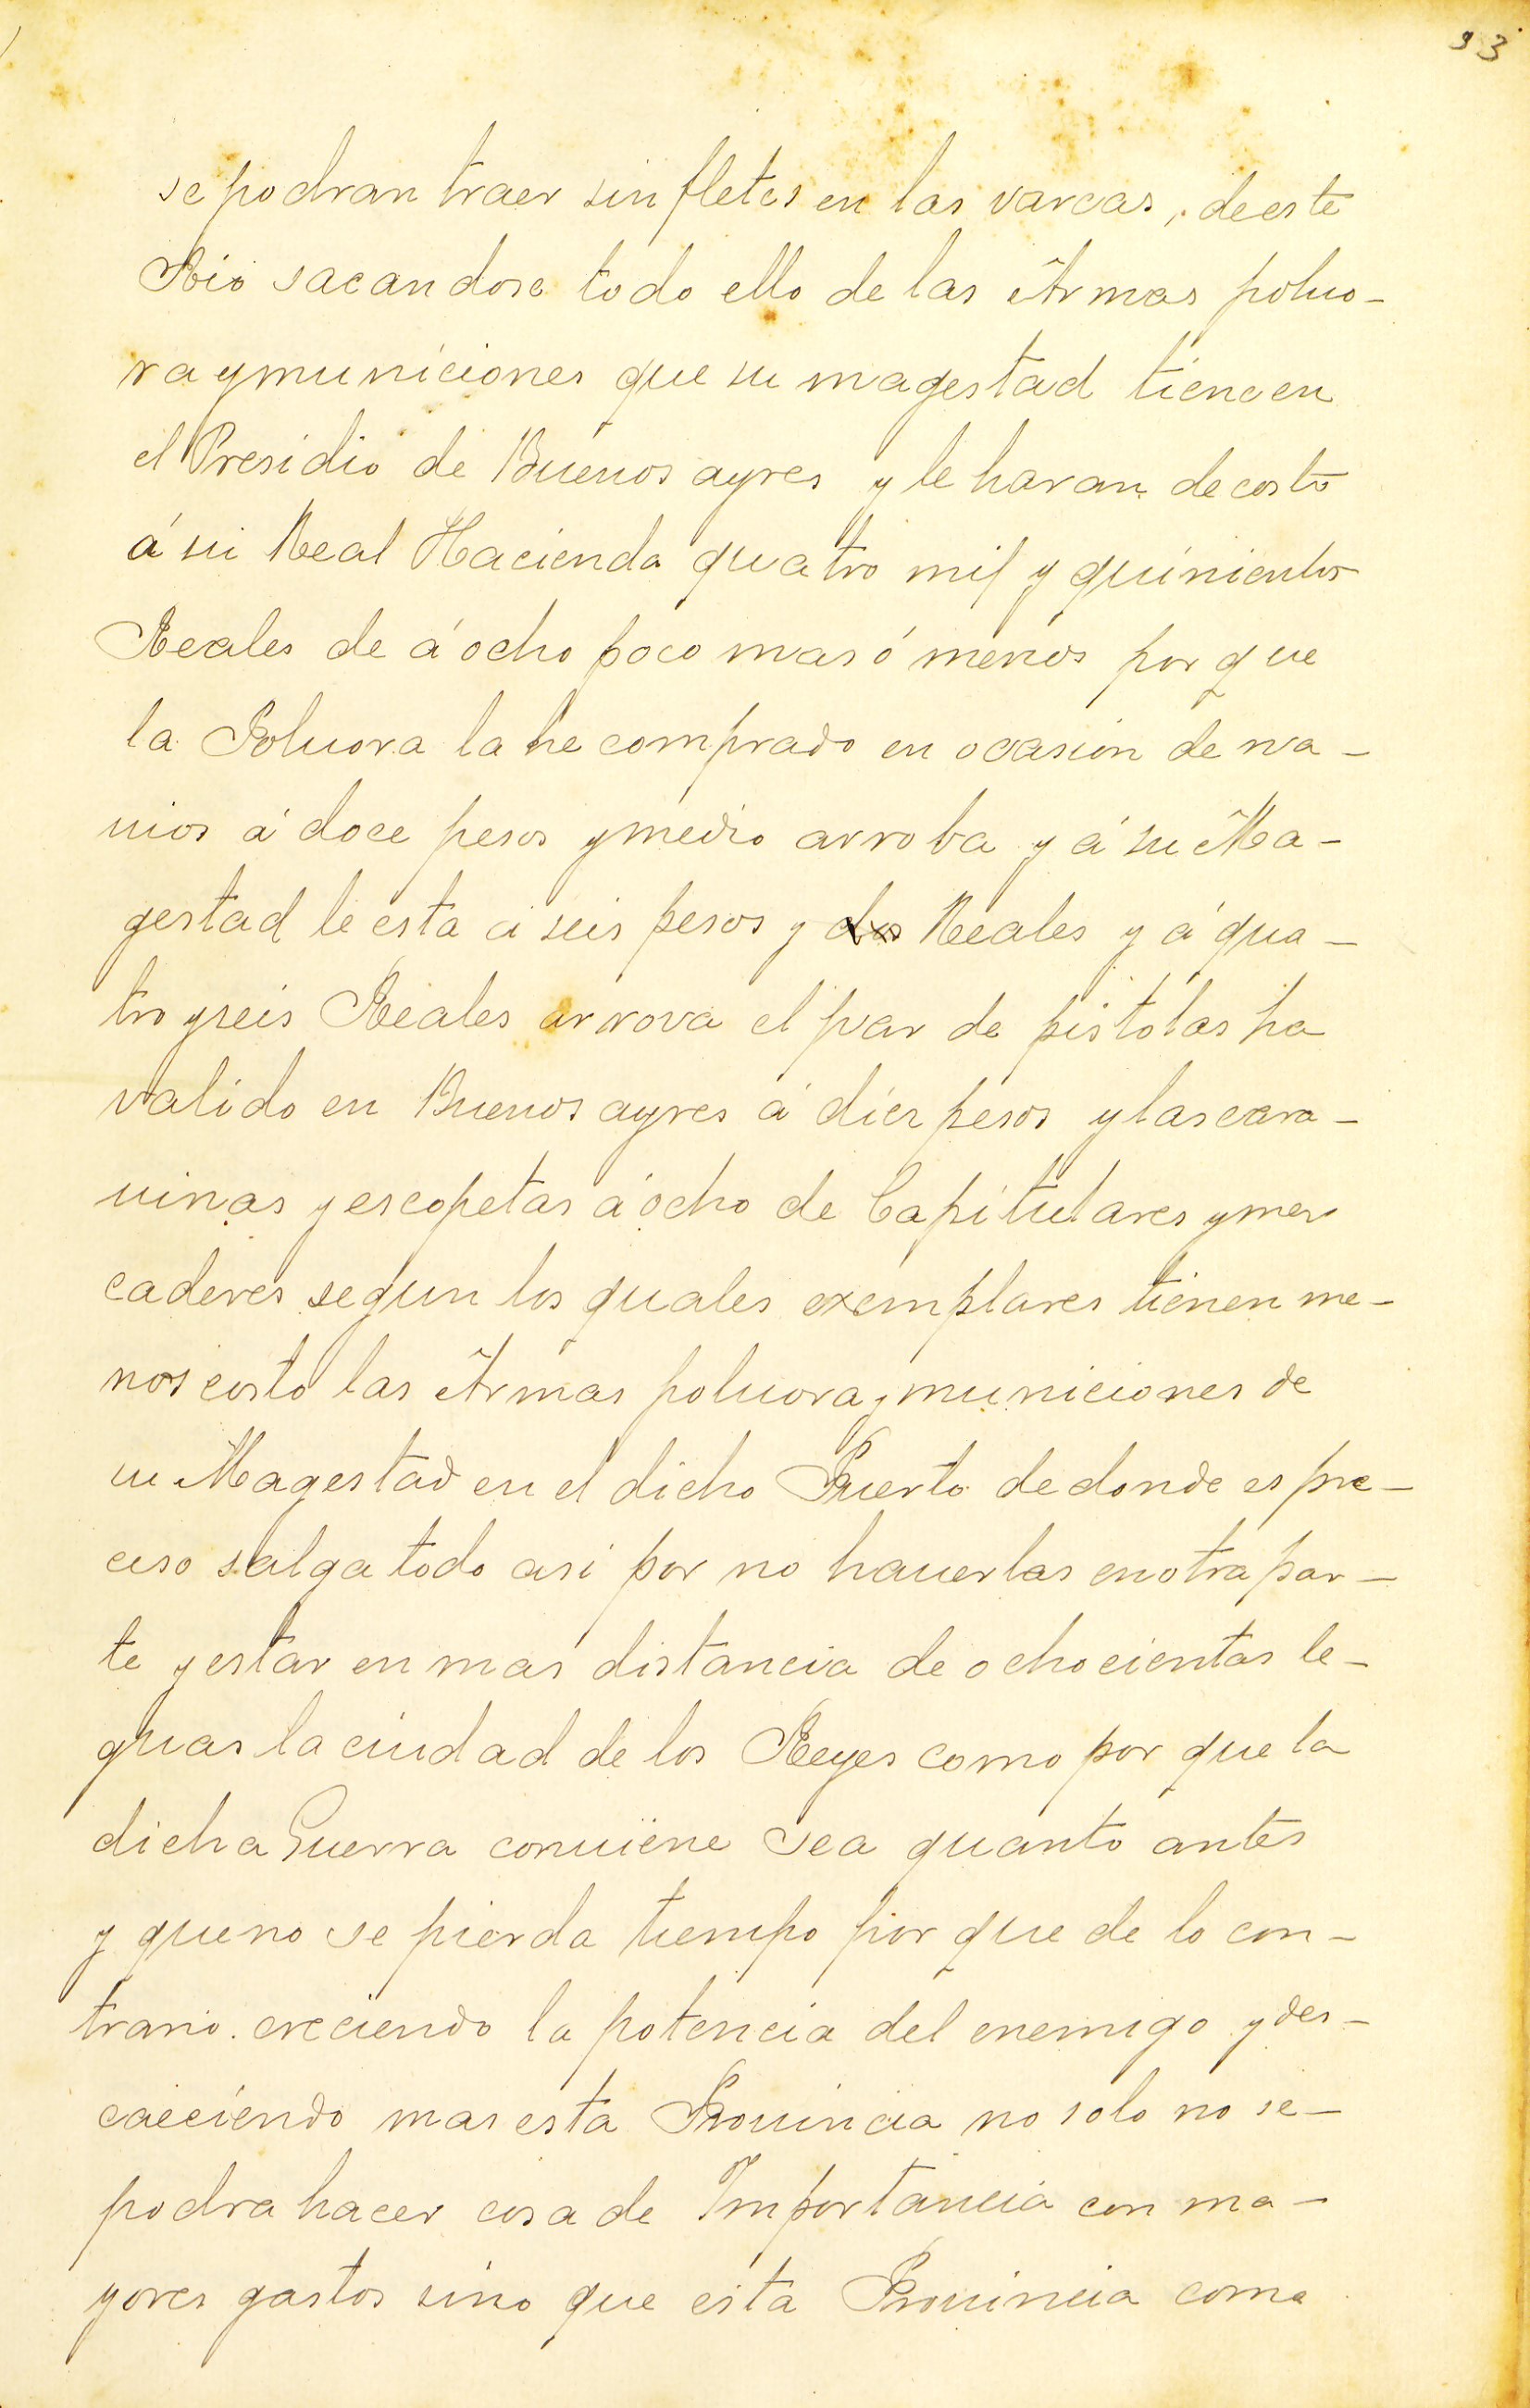 93
se podran traer sin fletes en las varcas, de este
Rio sacandose todo ello de las Armas poluo-
ra y municiones que su magestad tiene en
el Presidio de Buenos ayres y le haran de costo
á su Real Hacienda quatro mil y quinientos
Reales de á ocho poco mas ó menos por que
la Poluora la he comprado en ocasion de na-
uios á doce pesos y medio arroba y á su Ma-
gestad le esta á seis pesos y dos Reales y á qua-
tro y seis Reales arrova el par de pistolas ha
valido en Buenos ayres á diez pesos y las cara-
uinas y escopetas á ocho de Capitulares y mer
caderes segun los quales exemplares tienen me-
nos costo las Armas poluora y municiones de
su Magestad en el dicho Puerto de donde es pre-
ciso salga todo asi por no hauerlas en otra par-
te y estar en mas distancia de ochocientas le-
guas la ciudad de los Reyes como por que la
dicha Guerra conuiene sea quanto antes
y que no se pierda tiempo por que de lo con-
trario. creciendo la potencia del enemigo y des-
caeciendo mas esta Prouincia no solo no se-
podra hacer cosa de Importancia con ma-
yores gastos sino que esta Prouincia como